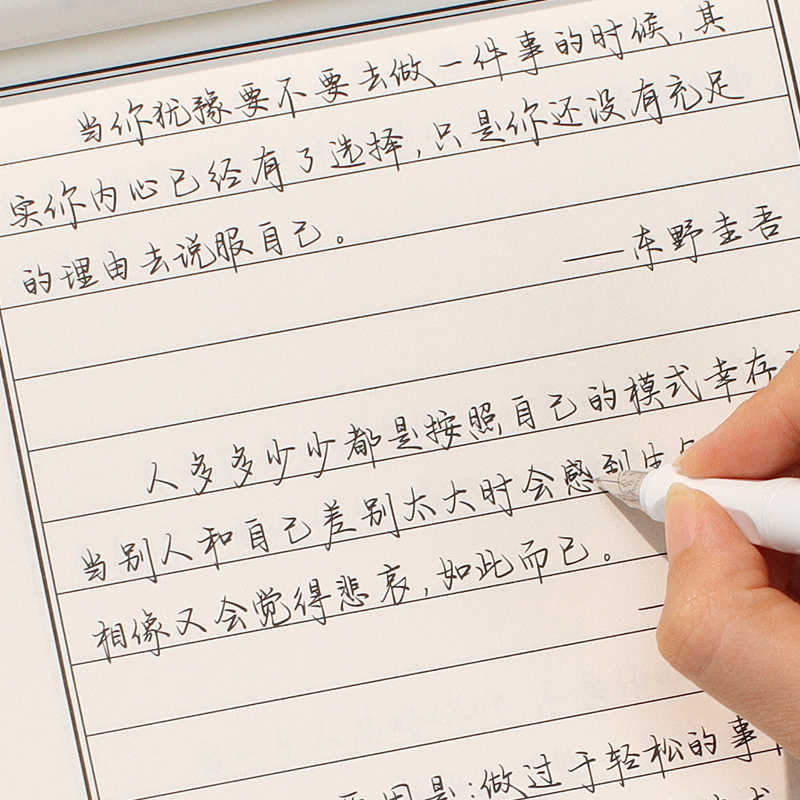 当你犹豫要不要去做一件事的时候,其
实你内心已经有了选择,只是你还没有充足
的理由去说服自己。
——东野圭吾
人多多少少都是按照自己的模式幸存
当别人和自己差别太大时会感到生气
相像又会觉得悲哀,如此而已。
因是:做过于轻松的事